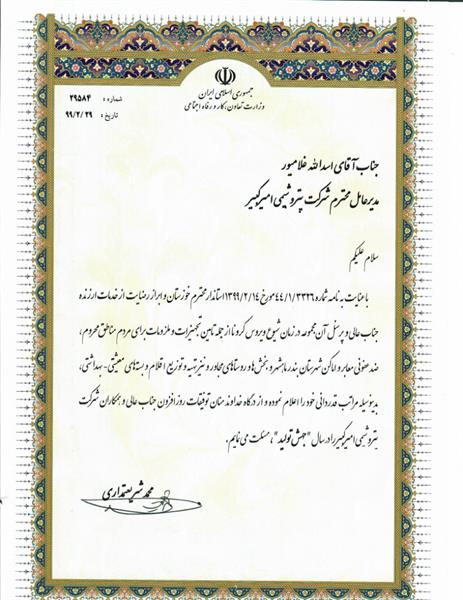 جمهوری اسلامی ایران
وزارت تعاون، کار و رفاه اجتماعی
شماره : ۲۹۵۸۴
تاریخ : ۹۹/۲/۲۹
جناب آقای اسدالله غلامپور
مدیرعامل محترم شرکت پتروشیمی امیرکبیر
سلام علیکم
با عنایت به نامه شماره ۴۴/۱/۳۳۲۶ مورخ ۱۳۹۹/۲/۱۴ استاندار محترم خوزستان و ابراز رضایت از خدمات ارزنده
جناب عالی و پرسنل آن مجموعه در زمان شیوع ویروس کرونا از جمله تامین تجهیزات و ملزومات برای مردم مناطق محروم،
ضد عفونی معابر و اماکن شهرستان بندر ماهشهر و بخش ها و روستاهای مجاور و نیز تهیه و توزیع اقلام و بسته های معیشتی-بهداشتی،
بدینوسیله مراتب قدردانی خود را اعلام نموده و از درگاه خداوند منان توفیقات روزافزون جناب عالی و همکاران شرکت
پتروشیمی امیرکبیر را در سال "جهش تولید"، مسئلت می نمایم.
محمد شریعتمداری